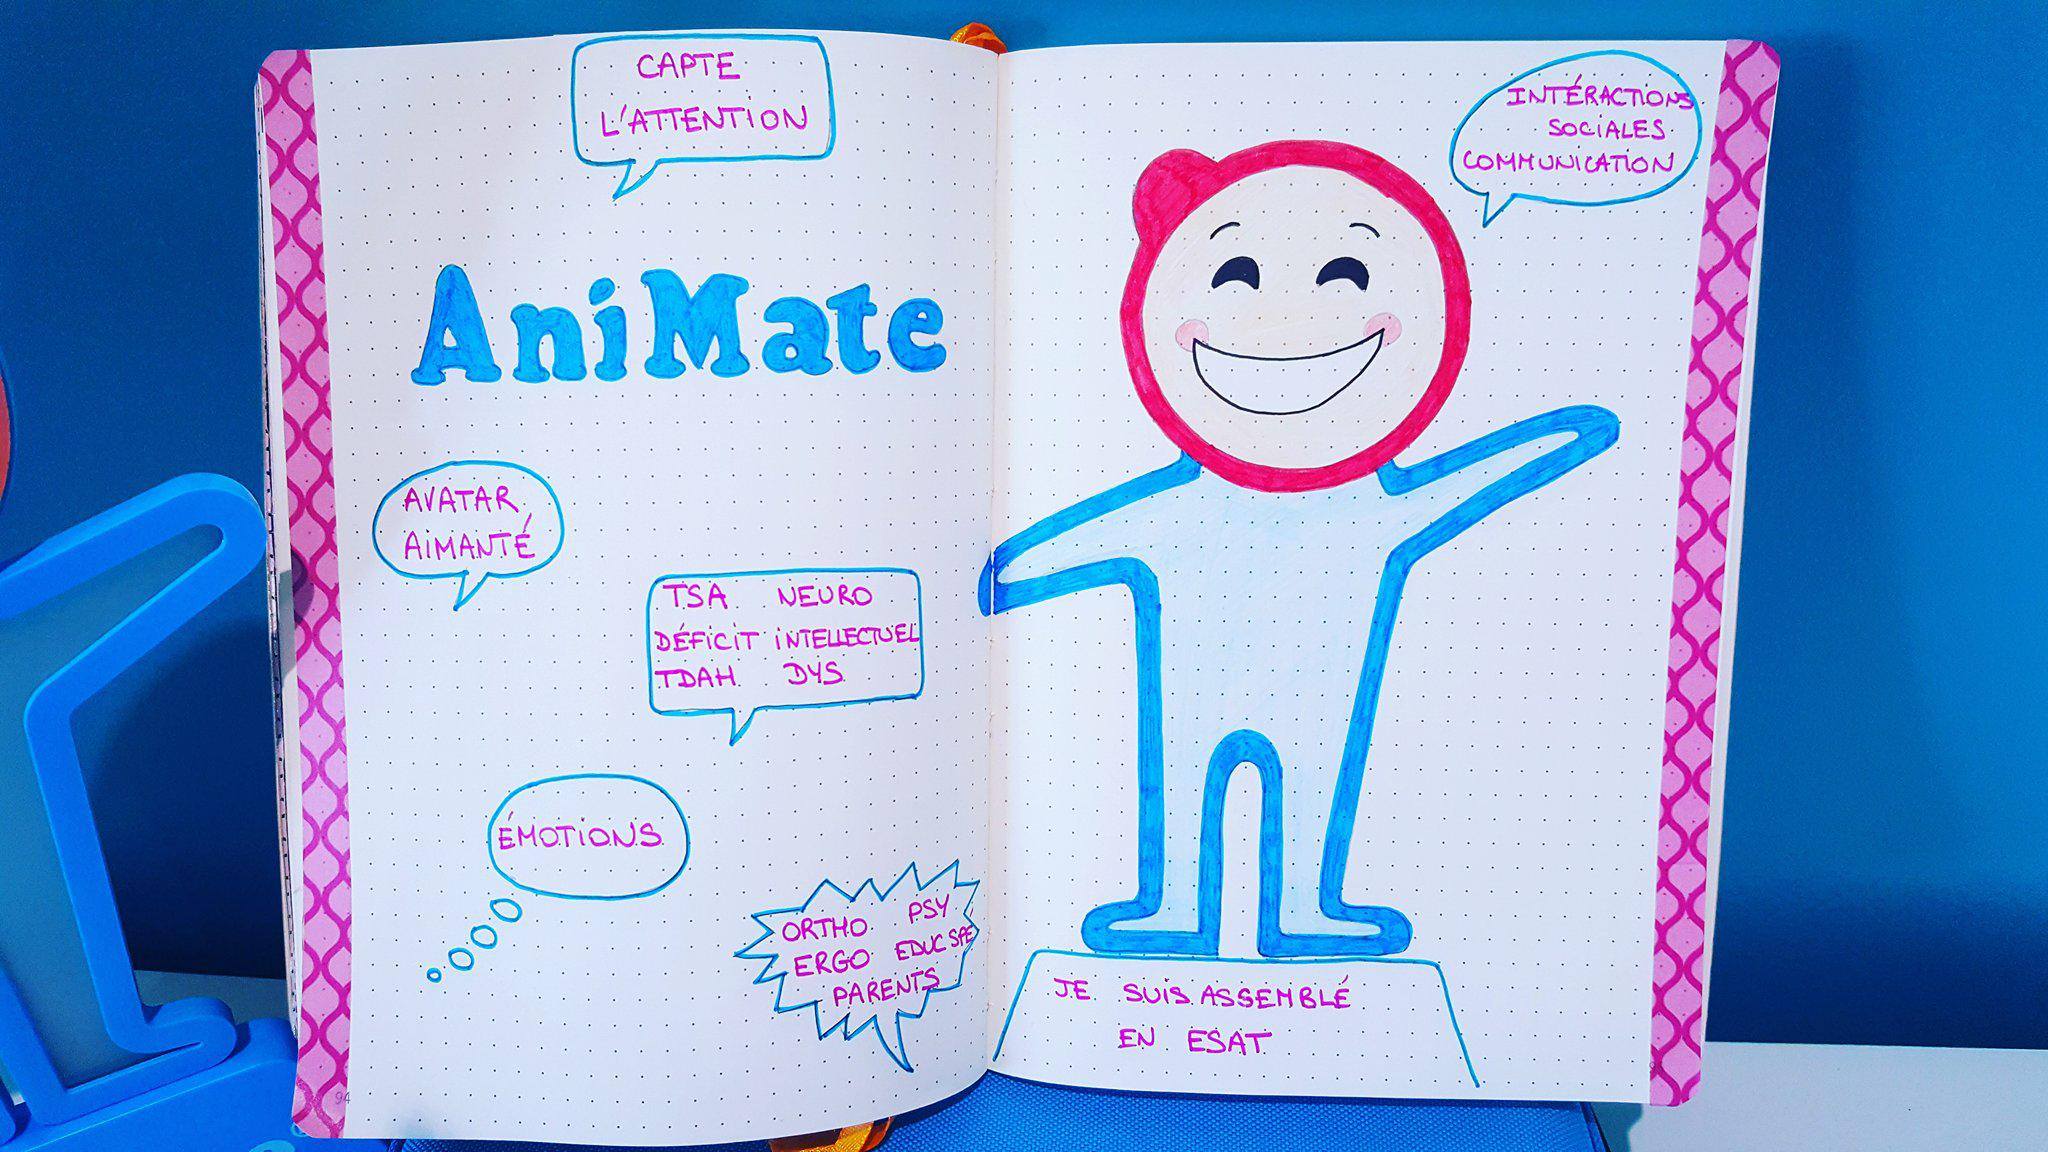 CAPTE
L'ATTENTION
AniMate
AVATAR
AIMANTÉ
TSA NEURO
DÉFICIT INTELLECTUEL
TDAH DYS
ÉMOTIONS
ORTHO PSY
ERGO EDUC SPE
PARENTS
94
INTÉRACTIONS
SOCIALES
COMMUNICATION
JE SUIS ASSEMBLÉ
EN ESAT